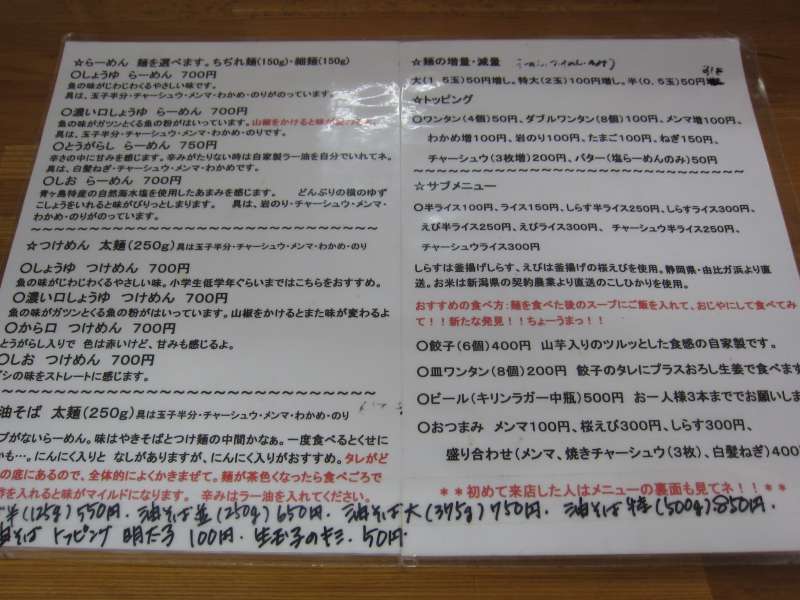 ☆らーめん 麺を選べます。ちぢれ麺(150g)・細麺(150g)
〇しょうゆ らーめん 700円
魚の味がじわじわくるやさしい味です。
具は、玉子半分・チャーシュウ・メンマ・わかめ・のりがのっています。
〇濃い口しょうゆ らーめん 700円
魚の味がガツンとくる魚の粉がはいっています。山椒をかけると味が
具は、玉子半分・チャーシュウ・メンマ・わかめ・のりです。
〇とうがらし らーめん 750円
辛さの中に甘みを感じます。辛みがたりない時は自家製ラー油を自分でいれてネ。
具は、白髪ねぎ・チャーシュウ・メンマ・わかめです。
〇しお らーめん 700円
青ヶ島特産の自然海水塩を使用したあまみを感じます。 どんぶりの横のゆず
こしょうをいれると味がぴりっとしまります。 具は、岩のり・チャーシュウ・メンマ
・わかめ・のりがのっています。
~~~~~~~~~~~~~~~~~~~~~~~~~~~~~~
☆つけめん 太麺(250g)具は玉子半分・チャーシュウ・メンマ・わかめ・のり
〇しょうゆ つけめん 700円
魚の味がじわじわくるやさしい味。小学生低学年ぐらいまではこちらをおすすめ。
〇濃い口しょうゆ つけめん 700円
魚の味がガツンとくる魚の粉がはいっています。山椒をかけるとまた味が変わるよ
〇から口 つけめん 700円
とうがらし入りで 色は赤いけど、甘みも感じるよ。
〇しお つけめん 700円
シの味をストレートに感じます。
~~~~~~~~~~~~~~~~~~~~~~~~~~~~~~
油そば 太麺(250g)具は玉子半分・チャーシュウ・メンマ・わかめ・のり
プがないらーめん。味はやきそばとつけ麺の中間かなぁ。一度食べるとくせに
かも…。にんにく入りと なしがありますが、にんにく入りがおすすめ。タレがど
の底にあるので、全体的によくかきまぜて。麺が茶色くなったら食べごろで
酢を入れると味がマイルドになります。 辛みはラー油を入れてください。
半(125g)550円. 油そば並(250g)650円. 油そば大(375g)750円. 油そば特(500g)850円.
油そば トッピング 明太子 100円. 生玉子のキミ. 50円.
☆麺の増量・減量
大(1.5玉)50円増し。特大(2玉)100円増し。半(0.5玉)50円
☆トッピング
〇ワンタン(4個)50円、ダブルワンタン(8個)100円、メンマ増100円、
わかめ増100円、岩のり100円、たまご100円、ねぎ150円、
チャーシュウ(3枚増)200円、バター(塩らーめんのみ)50円
~~~~~~~~~~~~~~~~~~~~~~~~~~~~~~
☆サブメニュー
〇半ライス100円、ライス150円、しらす半ライス250円、しらすライス300円、
えび半ライス250円、えびライス300円、 チャーシュウ半ライス250円、
チャーシュウライス300円
しらすは釜揚げしらす、えびは釜揚げの桜えびを使用。静岡県・由比ガ浜より直
送。お米は新潟県の契約農業より直送のこしひかりを使用。
おすすめの食べ方：麺を食べた後のスープにご飯を入れて、おじやにして食べてみ
て！！新たな発見！！ちょーうまっ！！
〇餃子(6個)400円 山芋入りのツルッとした食感の自家製です。
〇皿ワンタン(8個)200円 餃子のタレにプラスおろし生姜で食べます。
〇ビール(キリンラガー中瓶)500円 お一人様3本まででお願いしま
〇おつまみ メンマ100円、桜えび300円、しらす300円、
盛り合わせ(メンマ、焼きチャーシュウ(3枚)、白髪ねぎ)400
＊＊初めて来店した人はメニューの裏面も見てネ！！＊＊